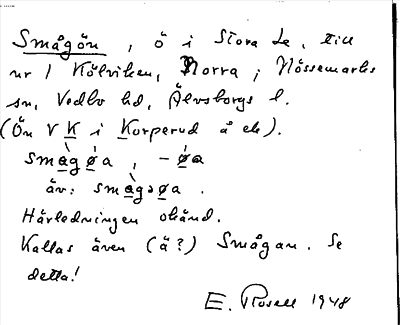 Smågön, ö i Stora Le, till
nr 1 Kölviken, Norra, i Nössemarks
sn, Vedbo hd, Älvsborgs l.
(Ön V K i Korperud å ek).
smạgø̣a, -ø̣a
äv: smạgəø̣a.
Härledningen okänd.
Kallas även (ä?) Smågan. Se
detta!
E. Rosell 1948